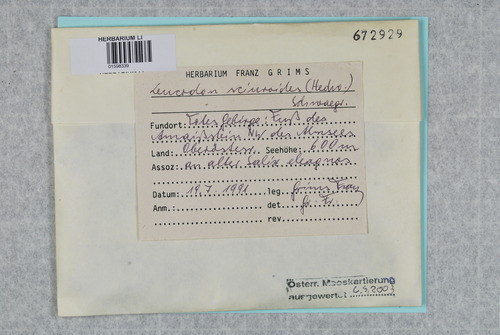 HERBARIUM LI
672929
HERBARIUM FRANZ GRIMS
Leucodon sciuroides (Hedw.)
Schwaegr.
Fundort: Totes Gebirge: Fuß des
NW. des Almsees
Land: Oberösterr. Seehöhe: 600 m
Assoz: an alter Salix eleagnos
Datum: 19.7.1991 leg. Grims Franz
Anm.: det. Gr. Fr.
rev.
Österr. Mooskartierung
ausgewertet 6.5.2003